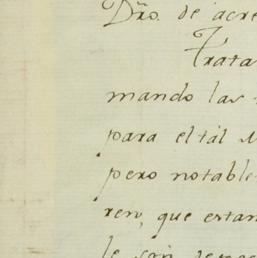 Dro. de acre
Trata
mando las
para el tál
pero notable
ren, que estan
le son